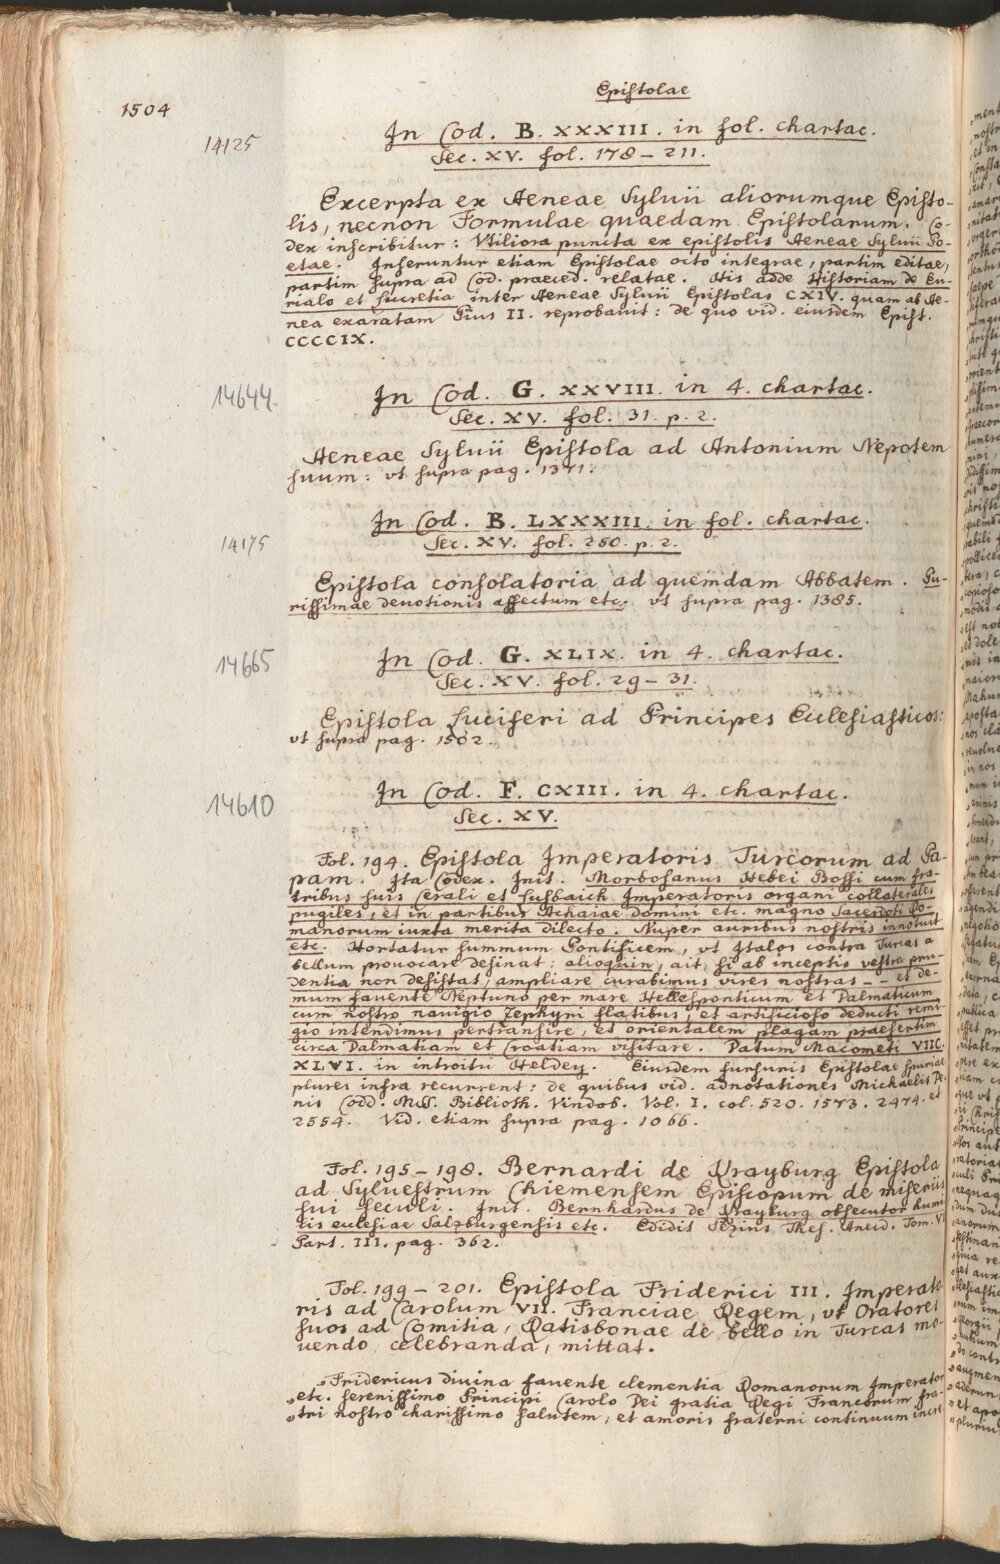 Epistolae
1504
14125
In Cod. B. XXXIII. in fol. chartac.
Sec. XV. fol. 178 – 211.
Excerpta ex Aeneae Syluii aliorumque Episto-
lis, necnon Formulae quaedam Epistolarum. Co-
dex inscribitur: Vtiliora puncta ex epistolis Aeneae Syluii Po-
etae. Inseruntur etiam Epistolae octo integrae, partim editae,
partim supra ad Cod. praeced. relatae. His adde Historiam de Eu-
rialo et Lucretia inter Aeneae Syluii Epistolas CXIV. quam ab Ae-
nea exaratam Pius II. reprobauit: de quo vid. eiusdem Epist.
CCCCIX.
14644
In Cod. G. XXVIII. in 4. chartac.
Sec. XV. fol. 31. p. 2.
Aeneae Syluii Epistola ad Antonium Nepotem
suum: vt supra pag. 1371.
14175
In Cod. B. LXXXIII. in fol. chartac.
Sec. XV. fol. 250. p. 2.
Epistola consolatoria ad quemdam Abbatem. Pu-
rissimae deuotionis affectum etc. vt supra pag. 1385.
14665
In Cod. G. XLIX. in 4. chartac.
Sec. XV. fol. 29 – 31.
Epistola Luciferi ad Principes Ecclesiasticos:
vt supra pag. 1502.
14610
In Cod. F. CXIII. in 4. chartac.
Sec. XV.
Fol. 194. Epistola Imperatoris Turcorum ad Pa-
pam. Ita Codex. Init. Morbosanus Hebei Bossi cum fra-
tribus suis Cerali et Susbaich Imperatoris organi collaterales
pugiles, et in partibus Achaiae domini etc. magno sacerdoti Ro-
manorum iuxta merita dilecto. Nuper auribus nostris innotuit
etc. Hortatur summum Pontificem, vt Italos contra Turcas a
bellum prouocare desinat: alioquin, ait, si ab inceptis vestra pru-
dentia non desistat, ampliare curabimus vires nostras – – et de-
mum fauente Neptuno per mare Hellesponticum et Dalmaticum
cum nostro nauigio Zephyri flatibus, et artificioso deducti remi-
gio intendimus pertransire, et orientalem plagam praesertim
circa Dalmatiam et Croatiam visitare. Datum Macometi VIIC.
XLVI. in introitu Heldey. Eiusdem fursuris Epistolae spuriae
plures infra recurrent: de quibus vid. adnotationes Michaelis De-
nis Codd. MSS. Biblioth. Vindob. Vol. I. col. 520. 1573. 2474. et
2554. Vid. etiam supra pag. 1066.
Fol. 195 – 198. Bernardi de Krayburg Epistola
ad Syluestrum Chiemensem Episcopum de miseriis
sui seculi. Init. Bernhardus de Krayburg obsecutor humi-
lis ecclesiae Salzburgensis etc. Edidit Pezius Thes. Anecd. Tom. VI
Part. III. pag. 362.
Fol. 199 – 201. Epistola Friderici III. Imperato-
ris ad Carolum VII. Franciae Regem, vt Oratores
suos ad Comitia, Ratisbonae de bello in Turcas mo-
uendo, celebranda, mittat.
„Fridericus diuina fauente clementia Romanorum Imperator
„etc. serenissimo Principi Carolo Dei gratia Regi Francorum fra-
„tri nostro charissimo salutem, et amoris fraterni continuum incre-